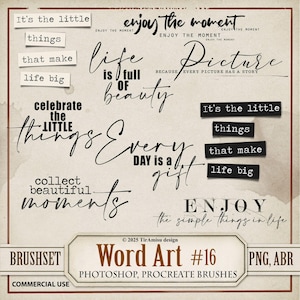 It's the little
things
that make
life big
enjoy the moment
ENJOY THE MOMENT
ENJOY THE MOMENT
ENJOY THE MOMENT
ENJOY THE MOMENT
life
is full
OF
beauty
Picture
BECAUSE EVERY PICTURE HAS A STORY
celebrate
the
LITTLE
things
It's the little
things
that make
life big
Every
DAY is a
gift
collect
beautiful
moments
ENJOY
the simple things in life
© 2025 TirAmisu design
BRUSHSET
Word Art #16
PNG, ABR
PHOTOSHOP, PROCREATE BRUSHES
COMMERCIAL USE